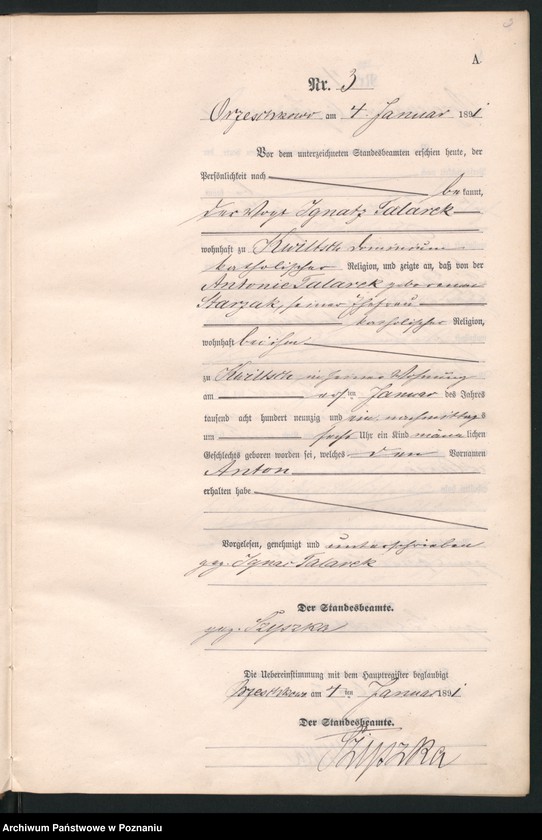 A.
Nr. 3
Orzeschkowo am 4. Januar 1891
Vor dem unterzeichneten Standesbeamten erschien heute, der
Persönlichkeit nach
bekannt,
der Vogt Ignatz Talarek
wohnhaft zu Kwiltsch Dominium
katholischer Religion, und zeigte an, daß von der
Antonie Talarek geborenen
Starzak, seiner Ehefrau
katholischer Religion,
wohnhaft bei ihm
zu Kwiltsch in seiner Wohnung
am ersten Januar des Jahres
tausend acht hundert neunzig und ein nachmittags
um sechs Uhr ein Kind männlichen
Geschlechts geboren worden sei, welches den Vornamen
Anton
erhalten habe
Vorgelesen, genehmigt und unterschrieben
gez. Ignac Talarek
Der Standesbeamte.
gez. Szyszka
Die Uebereinstimmung mit dem Hauptregister beglaubigt
Orzeschkowo am 4 ten Januar 1891
Der Standesbeamte.
Szyszka
Archiwum Państwowe w Poznaniu